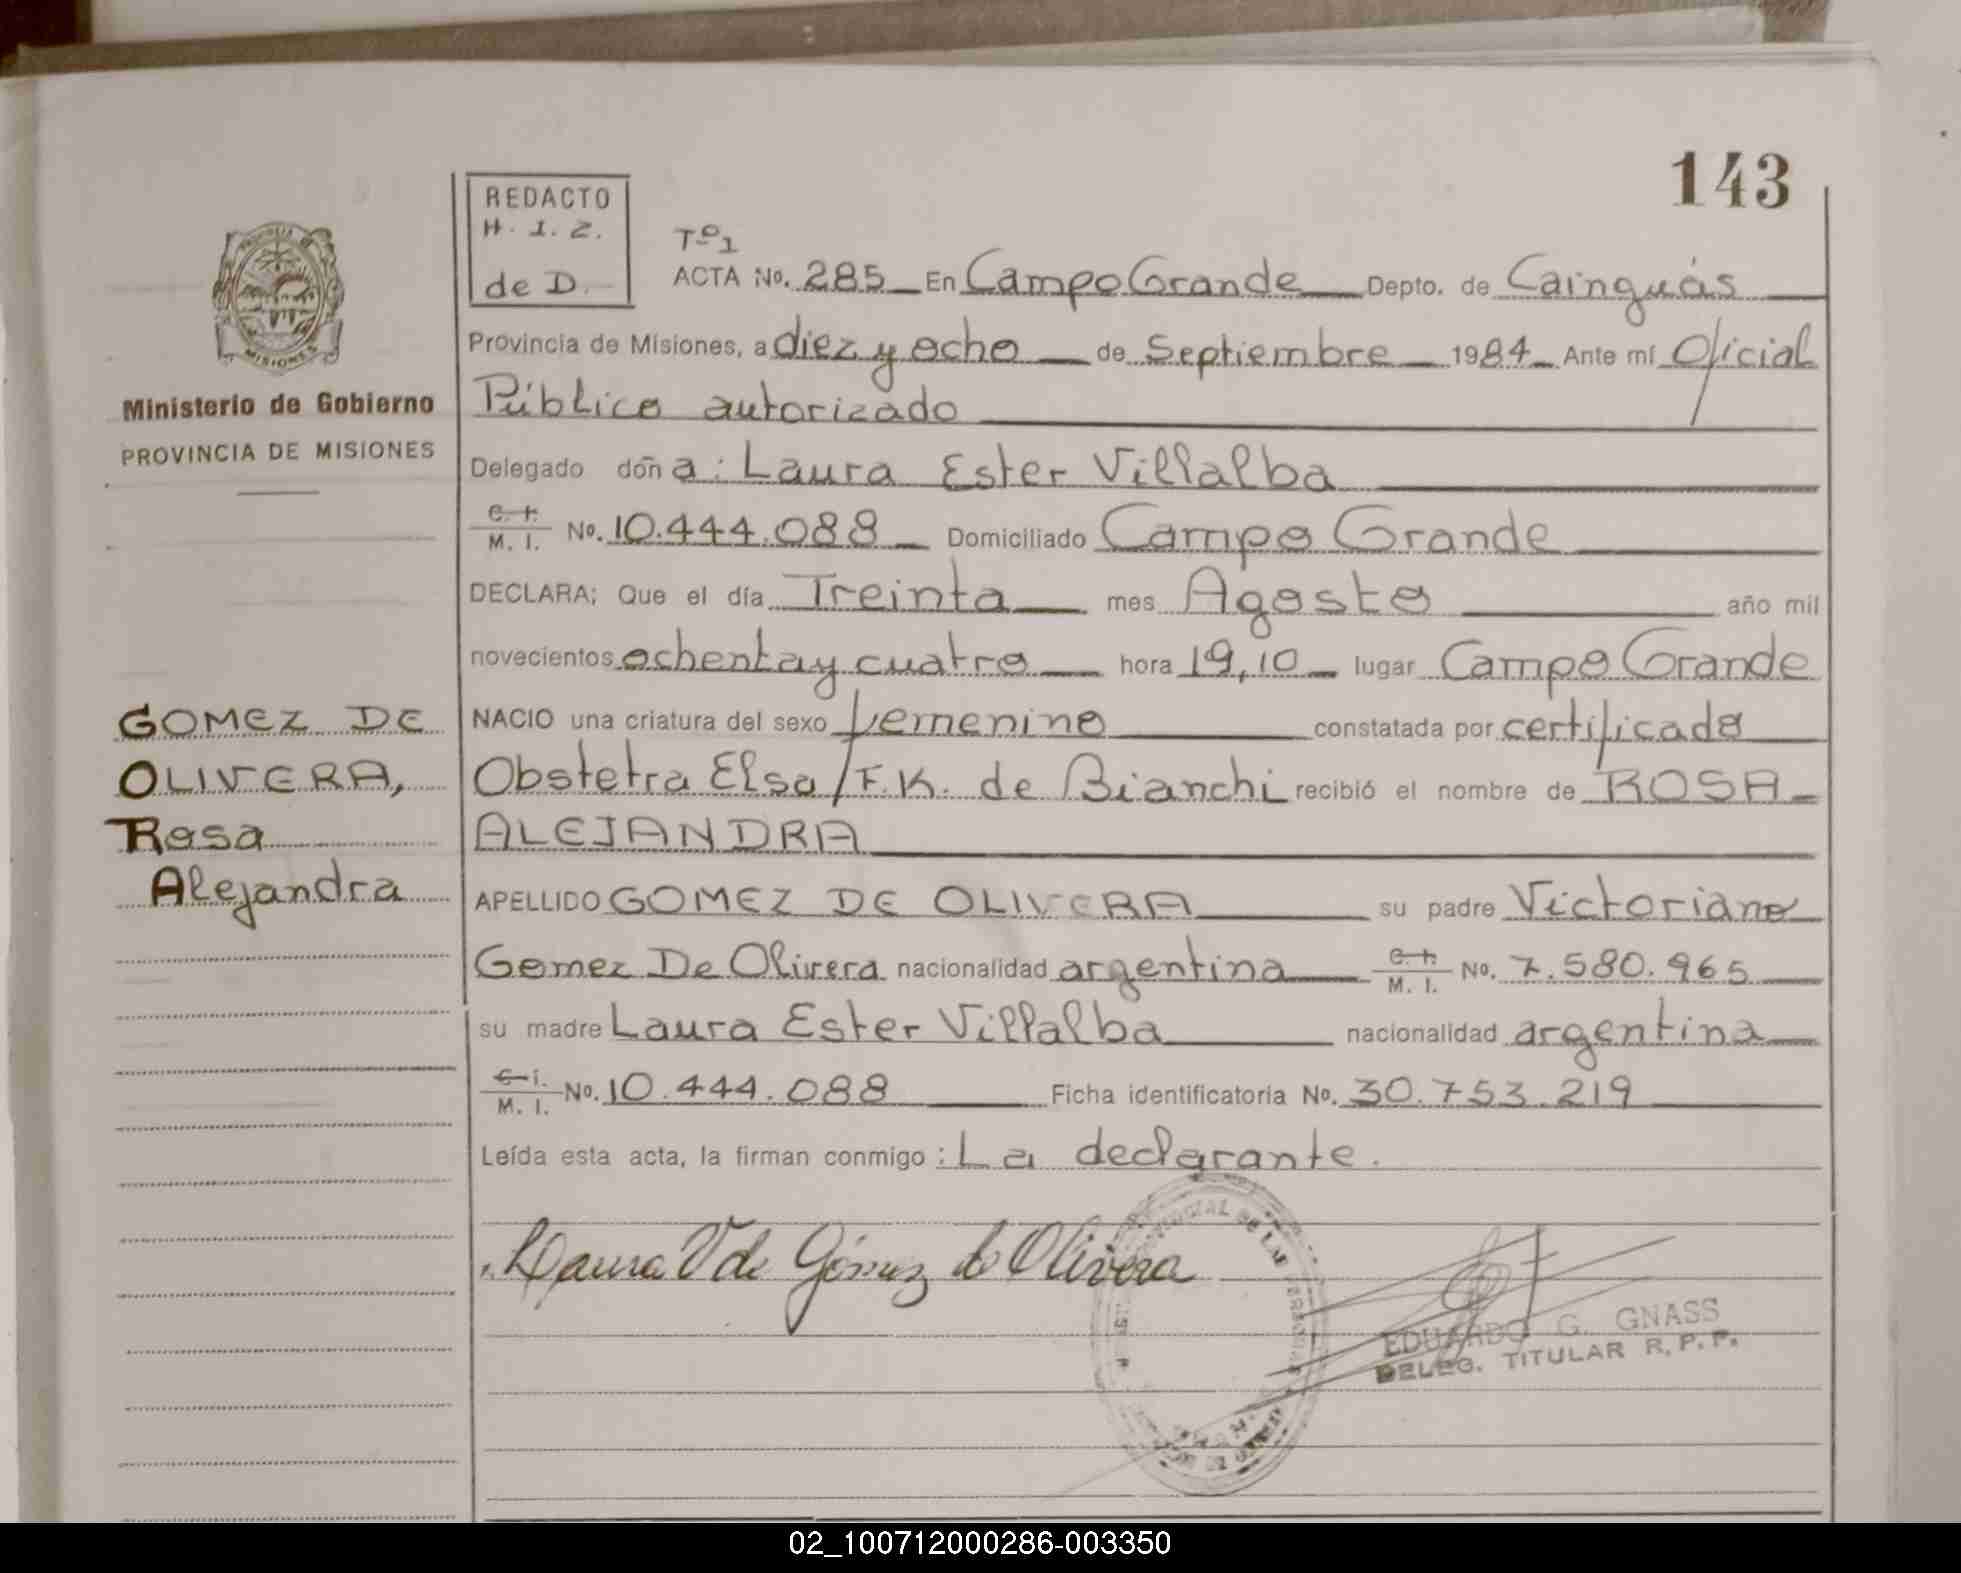 143
REDACTO
H. I. Z.
de D.
Tº 1
ACTA No. 285 En Campo Grande Depto. de Cainguás
Provincia de Misiones, a diez y ocho de Septiembre 1984 Ante mí Oficial
Público autorizado
Delegado doña: Laura Ester Villalba
C. I. M. I. No. 10.444.088 Domiciliado Campo Grande
DECLARA; Que el día Treinta mes Agosto año mil
novecientos ochenta y cuatro hora 19,10 lugar Campo Grande
NACIO una criatura del sexo femenino constatada por certificado
Obstetra Elsa F.K. de Bianchi recibió el nombre de ROSA
ALEJANDRA
APELLIDO GOMEZ DE OLIVERA su padre Victoriano
Gomez De Olivera nacionalidad argentina C. I. M. I. No. 7.580.965
su madre Laura Ester Villalba nacionalidad argentina
C. I. M. I. No. 10.444.088 Ficha identificatoria No. 30.753.219
Leída esta acta, la firman conmigo: La declarante.
Laura V de Gómez de Olivera
EDUARDO G. GNASS
DELEG. TITULAR R.P.P.
MISIONES
Ministerio de Gobierno
PROVINCIA DE MISIONES
GOMEZ DE
OLIVERA,
Rosa
Alejandra
02_100712000286-003350